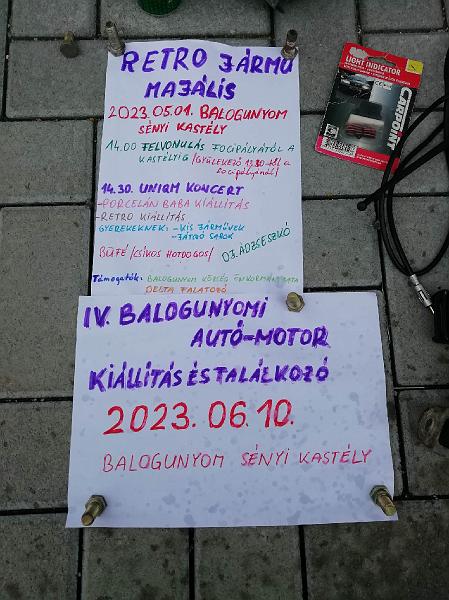 RETRO JÁRMŰ
MAJÁLIS
2023.05.01. BALOGUNYOM
SÉNYI KASTÉLY
14.00 FELVONULÁS FOCIPÁLYÁTÓL A
KASTÉLYIG /GYÜLEKEZŐ 13.30-tól a
focipályánál/
14.30. UNIQM KONCERT
-PORCELÁN BABA KIÁLLÍTÁS
-RETRO KIÁLLÍTÁS
GYEREKEKNEK: -KIS JÁRMŰVEK
-JÁTSZÓ SAROK
BÜFÉ /CSÍKOS HOTDOGOS/
DJ. ADZSESZKÓ
Támogatók: BALOGUNYOM KÖZSÉG ÖNKORMÁNYZATA
DELTA FALATOZÓ
IV. BALOGUNYOMI
AUTÓ-MOTOR
KIÁLLÍTÁS ÉS TALÁLKOZÓ
2023.06.10.
BALOGUNYOM SÉNYI KASTÉLY
LIGHT INDICATOR
CARPOINT